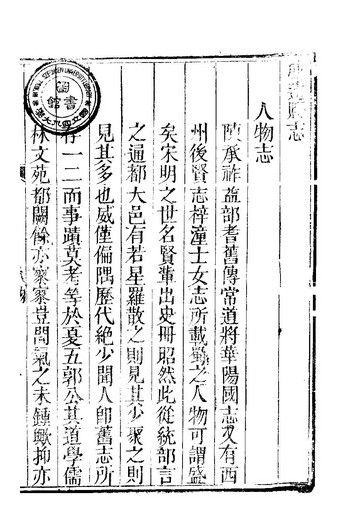 威遠縣志
人物志
陳承祚益部耆舊傳常道將華陽國志又有西
州後賢志梓潼士女志所載蜀之人物可謂盛
矣宋明之世名賢輩出史冊昭然此從統部言
之通都大邑有若星羅散之則見其少聚之則
見其多也威僅偏隅歷代絶少聞人卽舊志所
存一二而事蹟莫考等於夏五郭公其道學儒
林文苑都闕餘亦寥寥豈間氣之未鍾歟抑亦